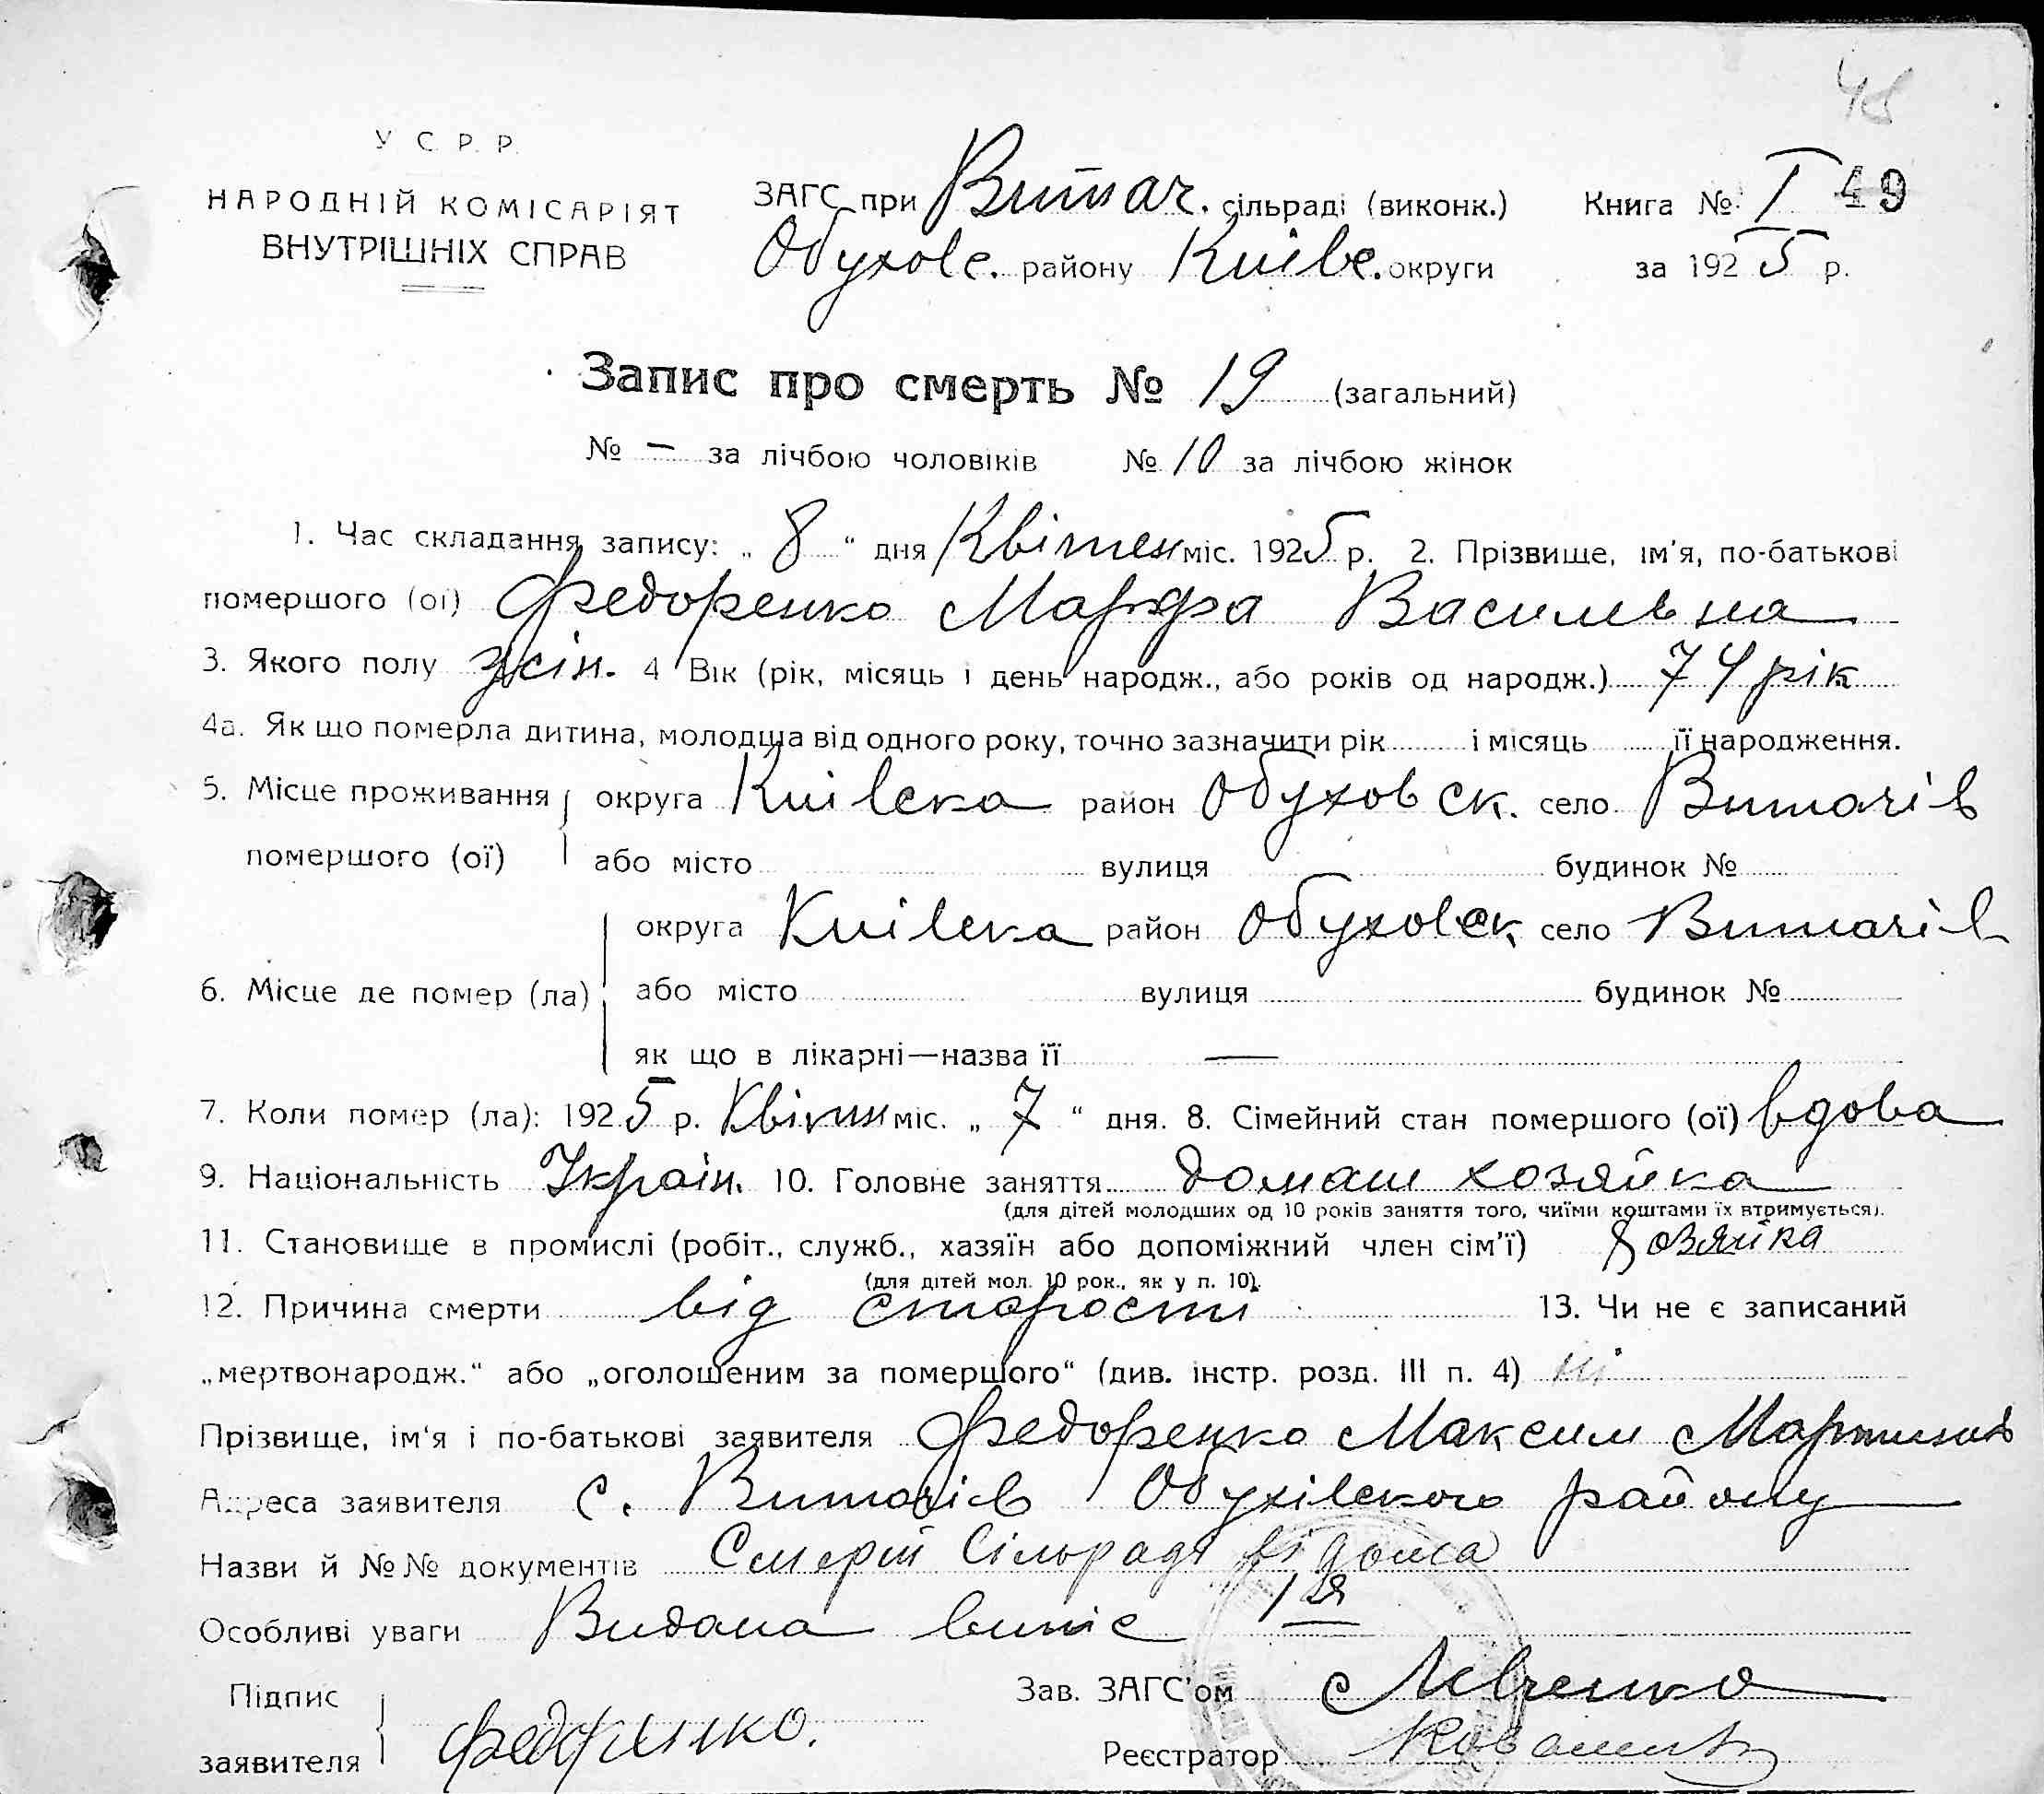 48
У С. Р. Р.
НАРОДНІЙ КОМІСАРІЯТ
ВНУТРІШНІХ СПРАВ
ЗАГС при Витач. сільраді (виконк.)
Обухове. району Київс. округи
Книга № I 49
за 1925 р.
Запис про смерть № 19 (загальний)
№ — за лічбою чоловіків № 10 за лічбою жінок
1. Час складання запису: „ 8 “ дня Квітен міс. 1925 р. 2. Прізвище, ім'я, по-батькові
помершого (ої) Федоренко Марфа Васильвна
3. Якого полу жін. 4 Вік (рік, місяць і день народж., або років од народж.) 74 рік
4а. Як що померла дитина, молодша від одного року, точно зазначити рік і місяць її народження.
5. Місце проживання округа Київска район Обуховск. село Витачів
помершого (ої) або місто вулиця будинок №
округа Київска район Обуховск село Витачів
6. Місце де помер (ла) або місто вулиця будинок №
як що в лікарні—назва її —
7. Коли помер (ла): 1925 р. Квітн міс. „ 7 “ дня. 8. Сімейний стан помершого (ої) вдова
9. Національність Україн. 10. Головне заняття домаш хозяйка
(для дітей молодших од 10 років заняття того, чиїми коштами їх втримується).
11. Становище в промислі (робіт., служб., хазяїн або допоміжний член сім'ї) Хозяйка
(для дітей мол. 10 рок., як у п. 10).
12. Причина смерти від старости 13. Чи не є записаний
„мертвонародж.“ або „оголошеним за помершого“ (див. інстр. розд. III п. 4) ні
Прізвище, ім'я і по-батькові заявителя Федоренко Максим Мартинів
Адреса заявителя с. Витачів Обухівского району
Назви й №№ документів Смерть Сільраді відома
Особливі уваги Видана випис 1 я
Підпис
заявителя Федоренко.
Зав. ЗАГС'ом Левченко
Реєстратор